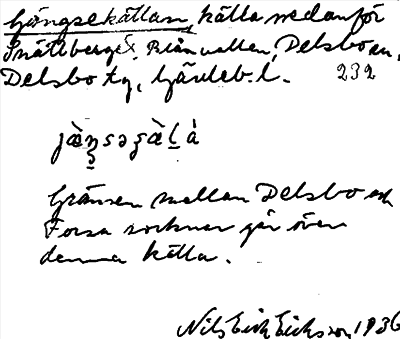 Gängsekällan, källa nedanför
Snättberget, Blåvallen, Delsbo sn,
Delsbo tg, Gävleb. l. 232
Gränsen mellan Delsbo och
Forsa socknar går över
denna källa.
Nils Erik Eriksson 1936